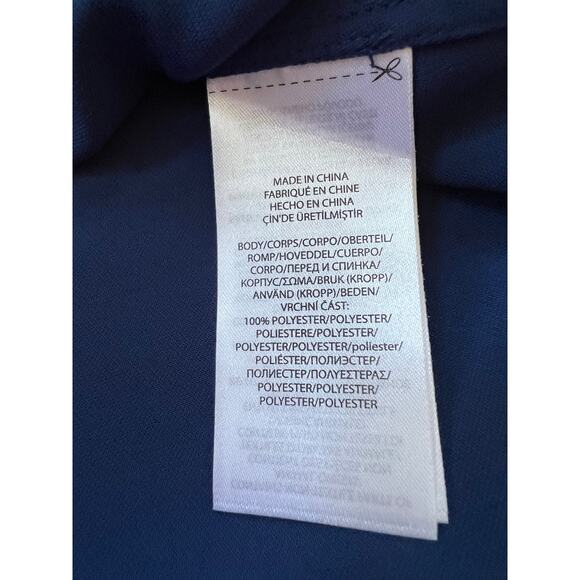 MADE IN CHINA
FABRIQUÉ EN CHINE
HECHO EN CHINA
ÇİN'DE ÜRETİLMİŞTİR
BODY/CORPS/CORPO/OBERTEIL/
ROMP/HOVEDDEL/CUERPO/
CORPO/ПЕРЕД И СПИНКА/
КОРПУС/ΣΩΜΑ/BRUK (KROPP)/
ANVÄND (KROPP)/BEDEN/
VRCHNÍ ČÁST:
100% POLYESTER/POLYESTER/
POLIESTERE/POLYESTER/
POLYESTER/POLYESTER/poliester/
POLIÉSTER/ПОЛИЭСТЕР/
ПОЛИЕСТЕР/ΠΟΛΥΕΣΤΕΡΑΣ/
POLYESTER/POLYESTER/
POLYESTER/POLYESTER